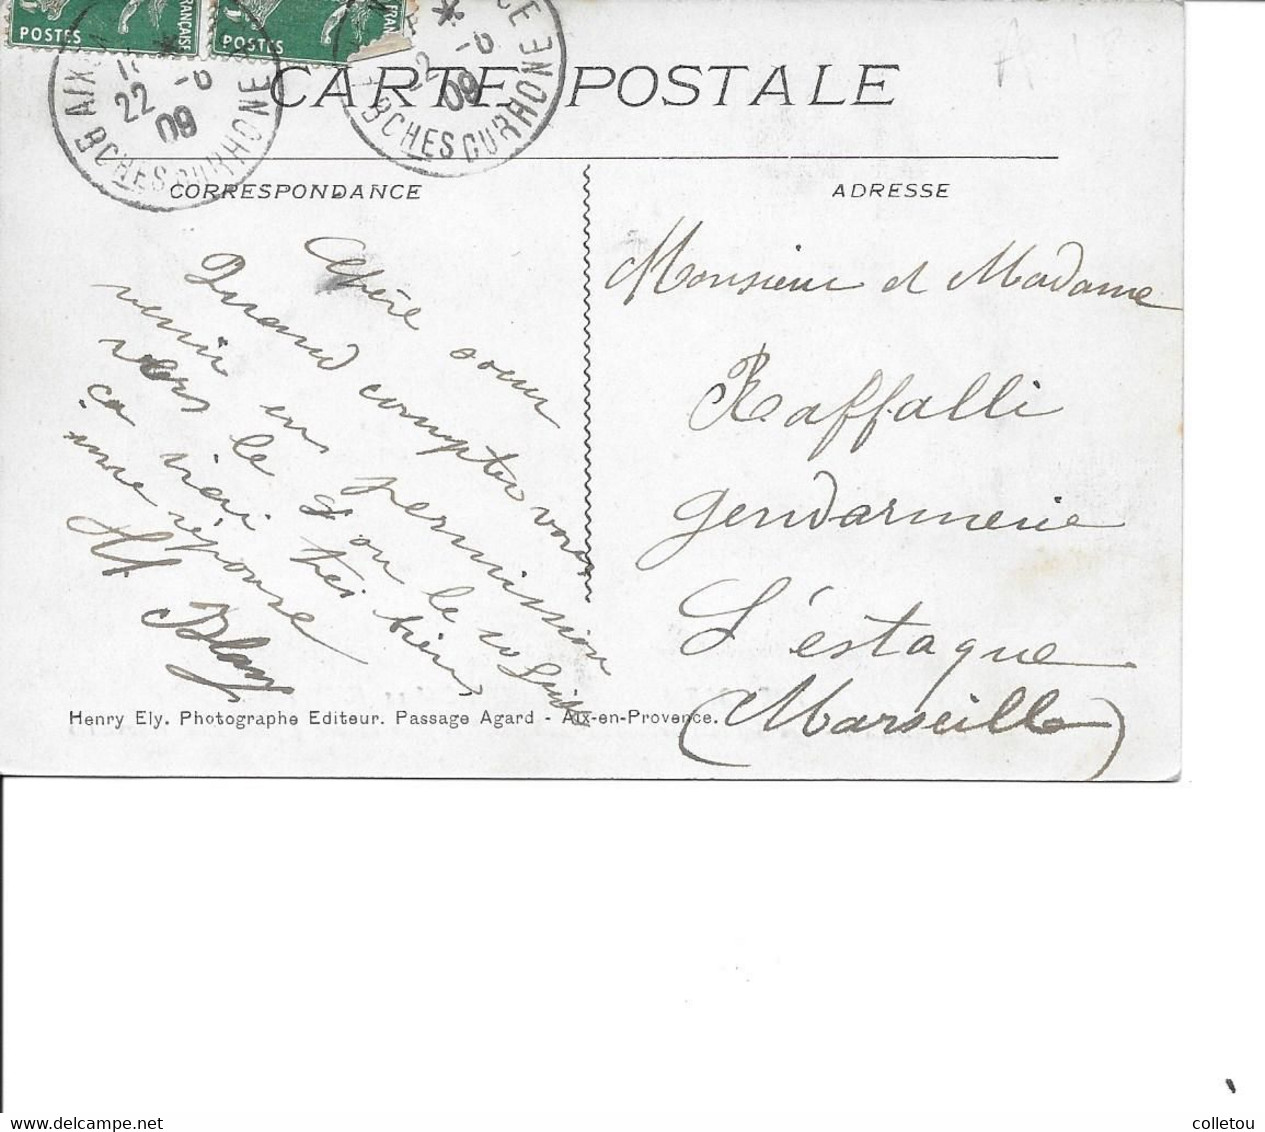 POSTES
FRANÇAISE
POSTES
AIX
22 -6
09
BCHES DU RHONE
2 -6
09
BCHES DU RHONE
CARTE POSTALE
CORRESPONDANCE
ADRESSE
Chère soeur
Quand comptez vous
venir en permission
vers le 9 ou le 10
ça irai très bien
une réponse
Monsieur et Madame
Raffalli
Gendarmerie
L'éstaque
(Marseille)
Henry Ely. Photographe Editeur. Passage Agard - Aix-en-Provence.
colletou